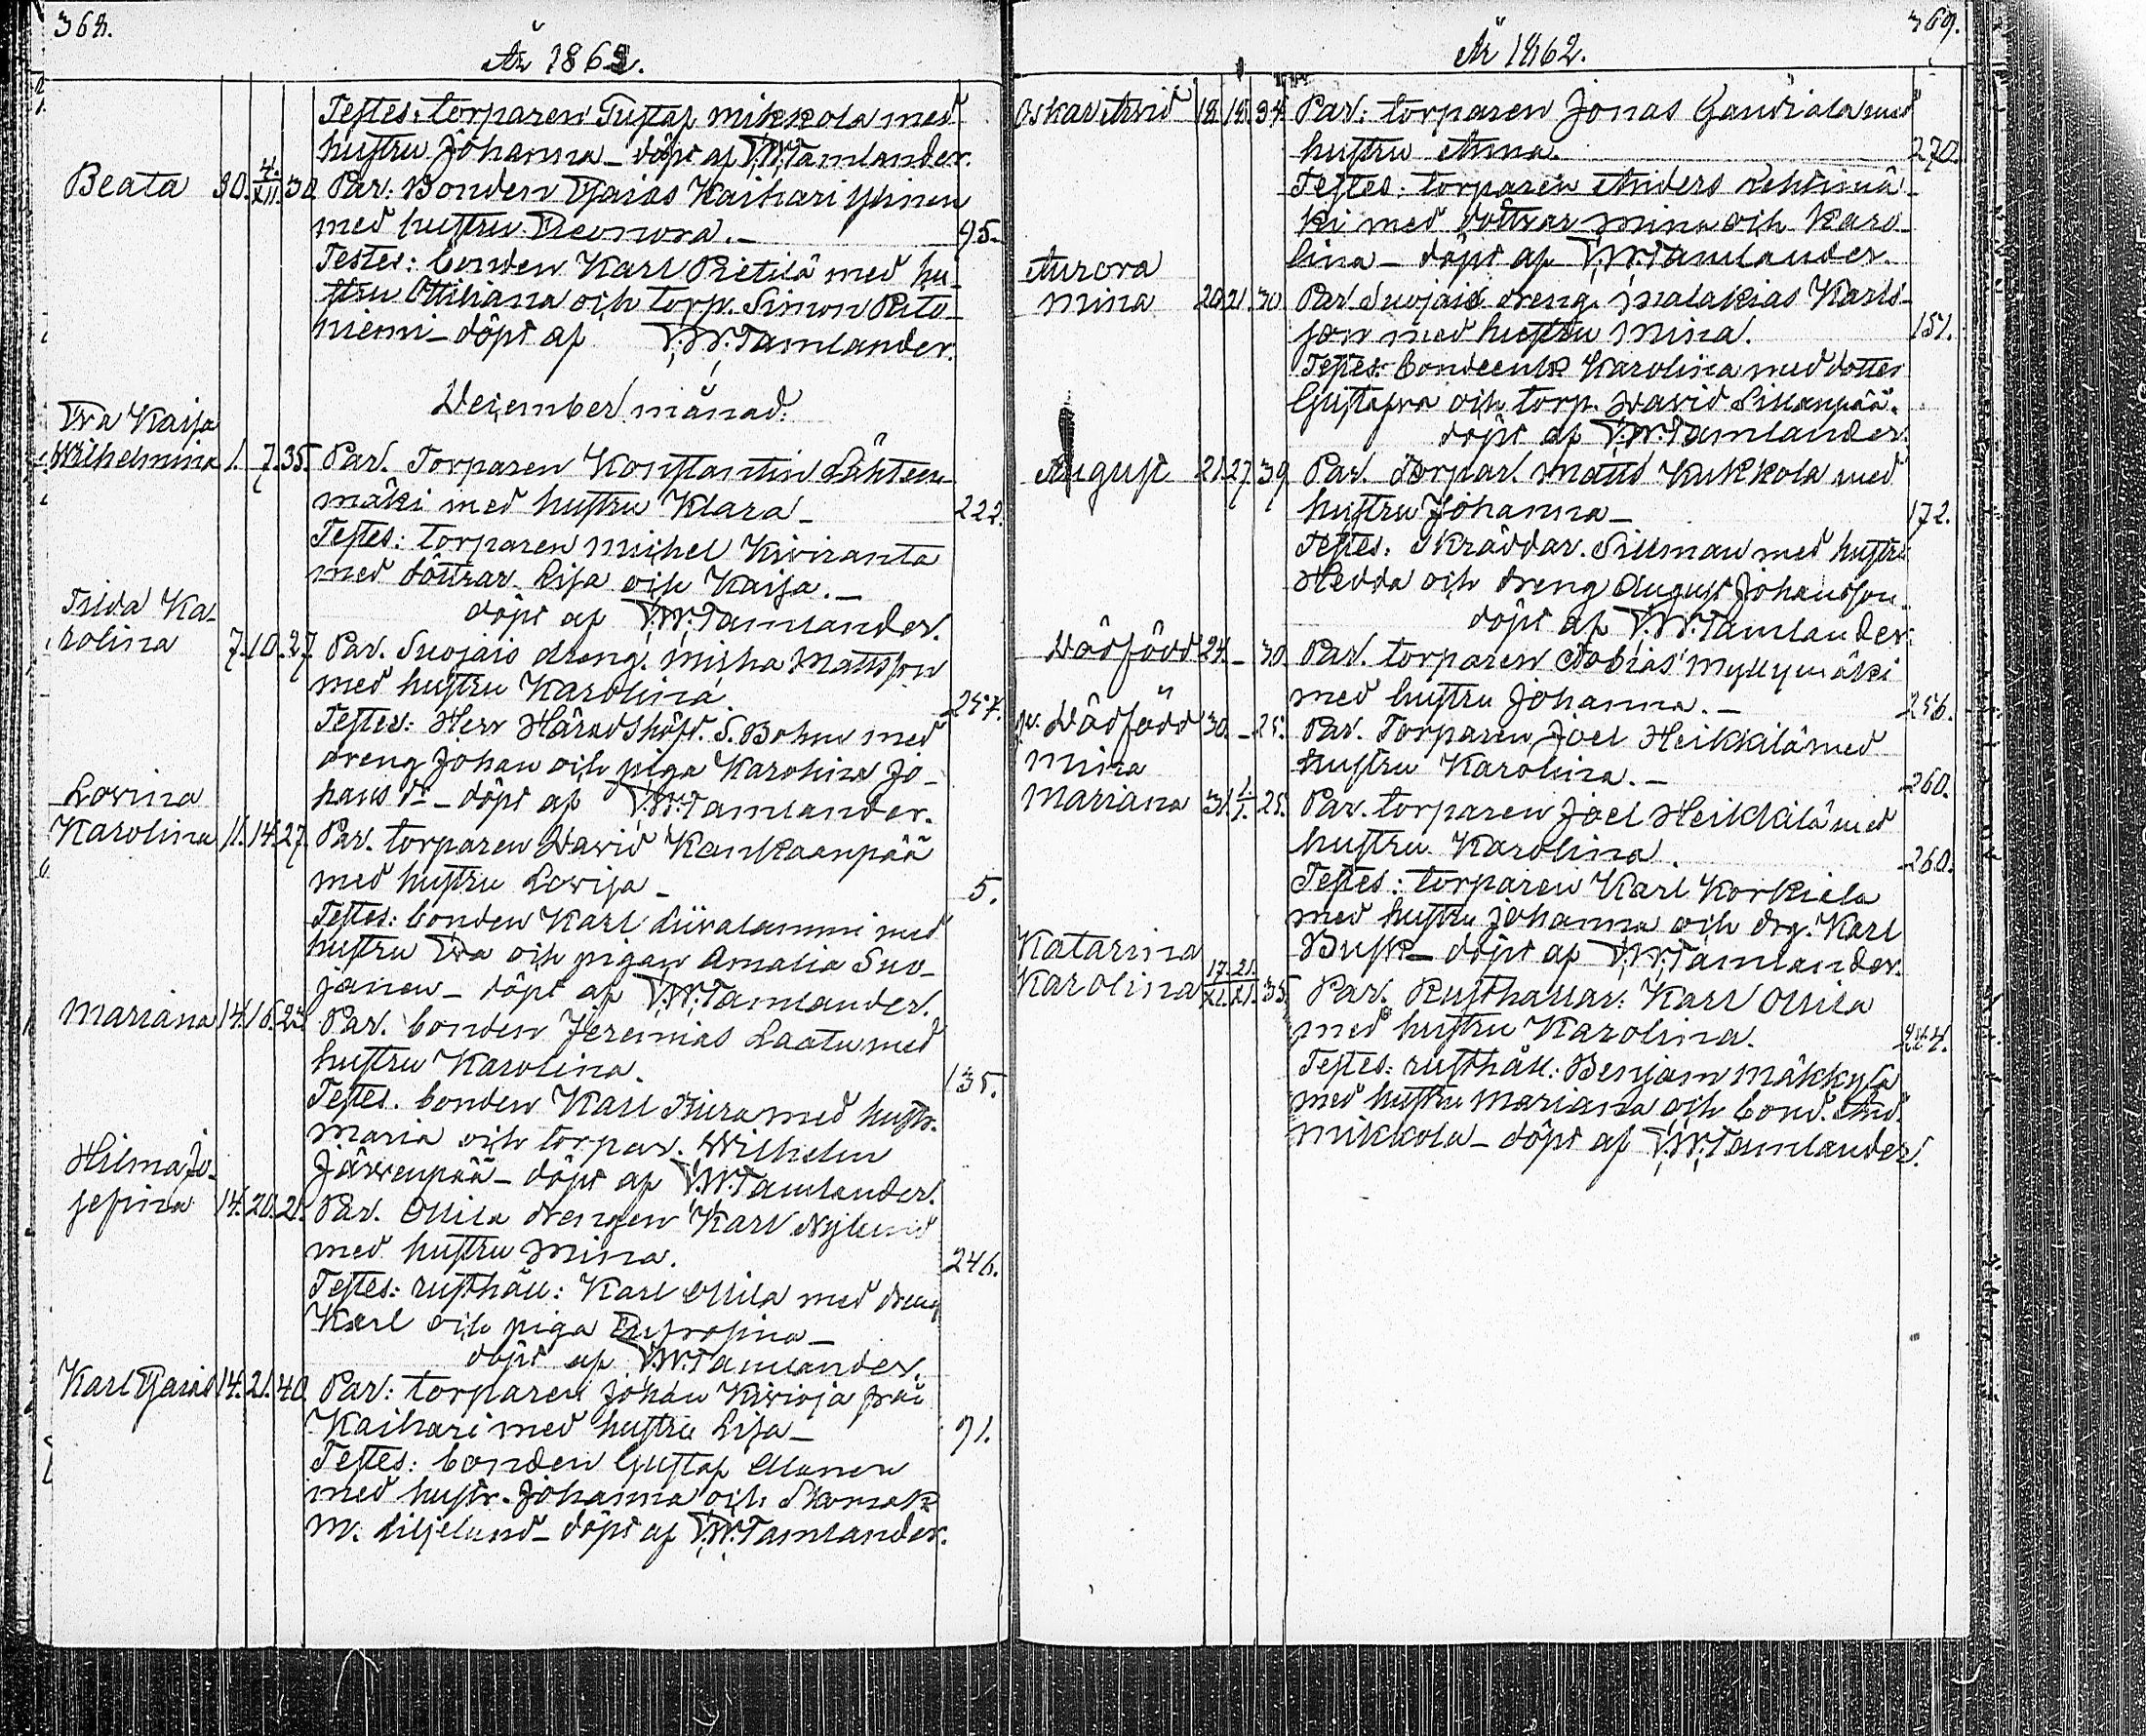 368.
År 1862.
Testes: torparen Gustaf Mikkola med
hustru Johanna – döpt af V.W. Tamlander.
Beata 30. 4/XII. 30. Par. Bonden Esaias Kaihari Yhnen
med hustru Eleonora. – 95.
Testes: bonden Karl Pietilä med hu-
stru Ottiliana och torp. Simon Rito-
niemi – döpt af V.W. Tamlander.
December månad.
Eva Kaisa
Wilhelmina 1. 7. 35. Par. Torparen Konstantin Lähteen-
mäki med hustru Klara – 222.
Testes: torparen Michel Kiviranta
med döttrar Lisa och Kaisa. –
döpt af V.W. Tamlander.
Frida Ka-
rolina 7. 10. 27. Par. Suojais dreng. Misha Mattsson
med hustru Karolina. 257.
Testes: Herr Häradshöfd. S. Bohm med
dreng Johan och piga Karolina Jo-
hans dr – döpt af V.W. Tamlander.
Lovina
Karolina 11. 14. 27. Par. torparen David Kankaanpää
med hustru Lovisa – 5.
Testes: bonden Karl Liivalammi med
hustru Eva och pigan Amalia Suo-
janen – döpt af V.W. Tamlander.
Mariana 14. 16. Par. bonden Jeremias Laatu med
hustru Karolina. 135.
Testes. bonden Karl med hustr.
Maria och torpar. Wilhelm
Järvenpää – döpt af V.W. Tamlander.
Hilma Jo-
sefina 14. 20. 21. Par. Ollila drengen Karl Nylund
med hustru Mina. 246.
Testes: rusthåll: Karl Ollila med dreng
Karl och piga Eufrosina –
döpt af V.W. Tamlander.
Karl Esaias 14. 21. 40. Par: torparen Johan Kivioja från
Kaihari med hustru Lisa – 91.
Testes: bonden Gustaf
med hustr. Johanna och Skomak
M. Liljelund – döpt af V.W. Tamlander.
369.
År 1862.
Oskar Arvid 18. 18. 34. Par: torparen Jonas Gandiala med
hustru Anna. 270.
Testes: torparen Anders Lehtimä-
ki med döttrar Mina och Karo-
lina – döpt af V.W. Tamlander.
Aurora
Mina 20. 21. 30. Par. Suojais dreng. Malakias Karls-
son med hustru Mina. 151.
Testes: bondeenk. Karolina med dotter
Gustafva och torp. David Sillanpää.
döpt af V.W. Tamlander.
August 21. 27. 39. Par. Torpar. Matts Kukkola med
hustru Johanna – 172.
Testes. Skräddar. Sillman med hustru
Hedda och dreng August Johansson.
döpt af V.W. Tamlander.
Dödfödd 24. – 30. Par. torparen Tobias Myllymäki
med hustru Johanna. – 256.
Dödfödd 30. – 25. Par. Torparen Joel Heikkilä med
hustru Karolina. – 260.
Mina
Mariana 31. 1/1. 25. Par. torparen Joel Heikkilä med
hustru Karolina. 260.
Testes: torparen Karl Korkiela
med hustru Johanna och drg. Karl
Busk – döpt af V.W. Tamlander.
Katarina
Karolina 17/XI. 21/XI. 35. Par. Rusthållar: Karl Ollila
med hustru Karolina. 244.
Testes: rusthåll: Benjam Mäkkylä
med hustru Mariana och bond. And.
Mikkola – döpt af V.W. Tamlander.